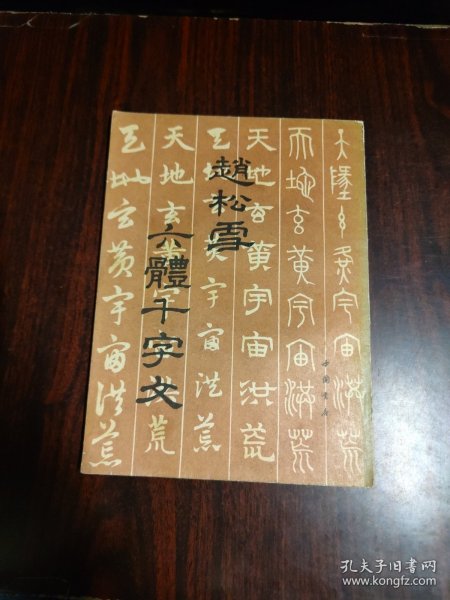 趙松雪
六體千字文
天地玄黃宇宙洪荒
天地玄黃宇宙洪荒
天地玄黃宇宙洪荒
天地玄黃宇宙洪荒
天地玄
荒
天地
黃宇宙洪荒
天地玄黃宇宙洪荒
中國書店
孔夫子旧书网
www.kongfz.com